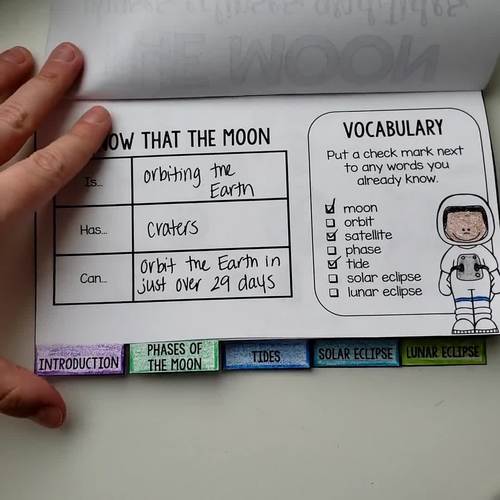 THE MOON
NOW THAT THE MOON
Is...
orbiting the
Earth
Has...
craters
Can...
orbit the Earth in
just over 29 days
VOCABULARY
Put a check mark next
to any words you
already know.
moon
orbit
satellite
phase
tide
solar eclipse
lunar eclipse
INTRODUCTION
PHASES OF
THE MOON
TIDES
SOLAR ECLIPSE
LUNAR ECLIPSE